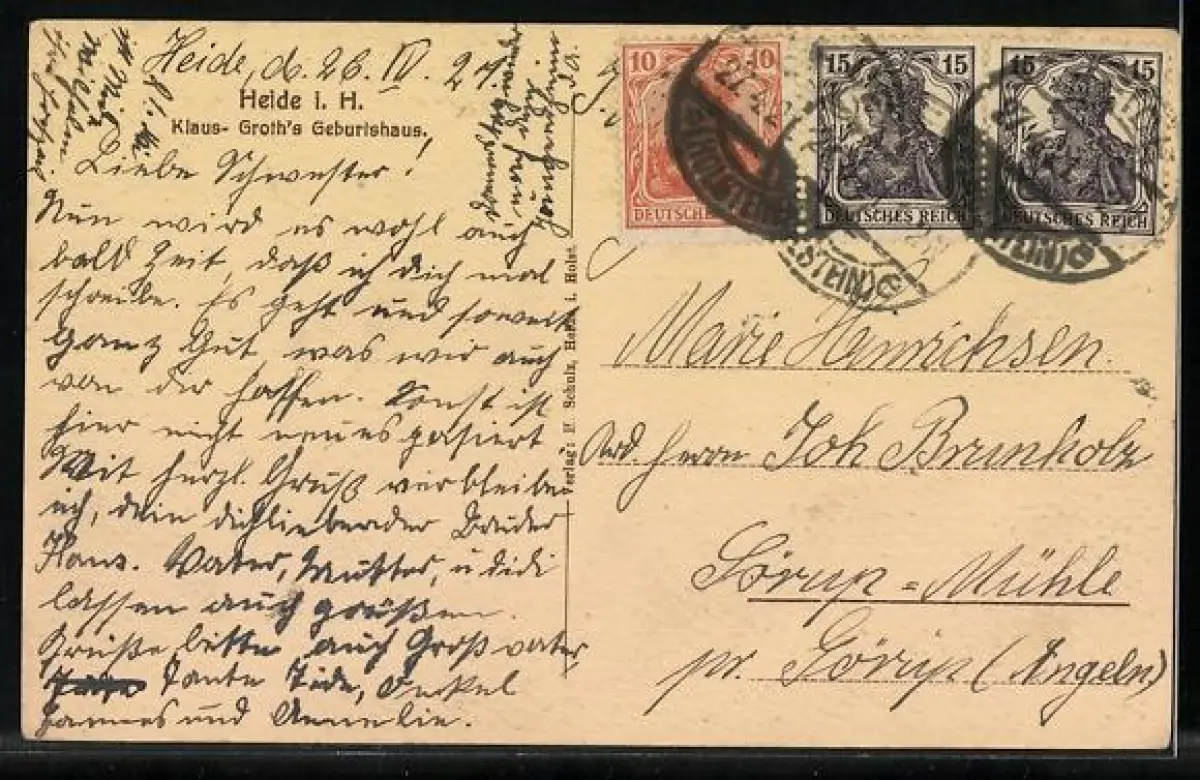 Heide, d. 26. IV. 21.
Heide i. H.
Klaus- Groth's Geburtshaus.
Liebe Schwester!
Nun wird es wohl auch
bald Zeit, daß ich dich mal
schreibe. Es geht uns soweit
Ganz Gut, was wir auch
von dir hoffen. Sonst ist
hier nicht neues pasiert
Mit herzl. Gruß verbleibe
ich, dein dichliebender Bruder
Hans. Vater, Mutter, u didi
lassen auch grüßen.
Grüße bitte auch Großvater
Tante Tide, Onkel
Hannes und Annelie.
Verlag: H. Schulz, Heide i. Holst.
10 10
DEUTSCHES
15 15
DEUTSCHES REICH
15 15
DEUTSCHES REICH
(HOLSTEIN)
Marie Henrichsen.
Adr. Herrn Joh Brunholz
Sörup=Mühle
pr. Sörup (Angeln)